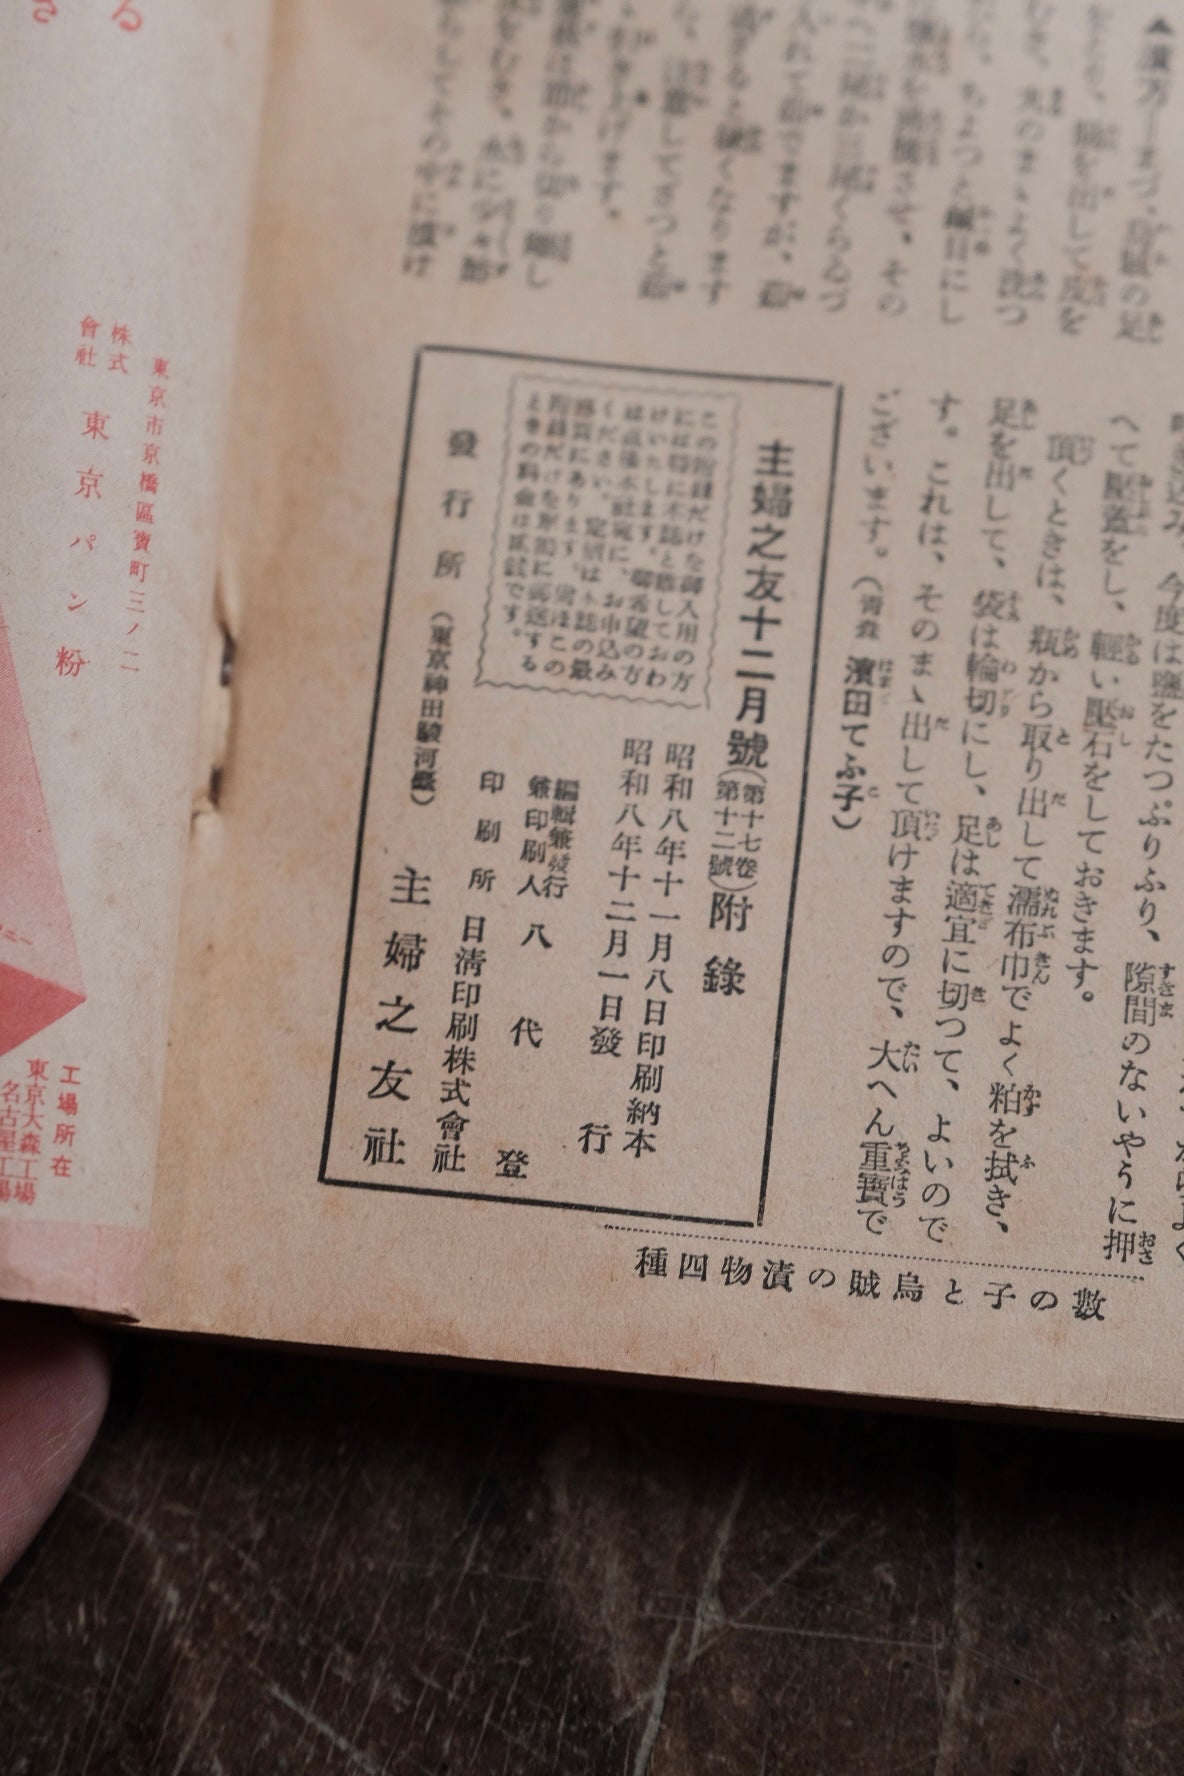 ▲漬方―まづ、烏賊の足
をとり、腸を出して皮を
むき、丸のまゝよく洗つ
たら、ちよつと鹹目にし
た鹽水を沸騰させ、その
中へ二尾か三尾くらゐづ
入れて茹でますが、茹
過ぎると硬くなります
から、注意してざつと茹
で、引き上げます。
切り離し
その中に漬け
今度は鹽をたつぷりふり、隙間のないやうに押
へて壓蓋をし、輕い壓石をしておきます。
頂くときは、瓶から取り出して濡布巾でよく粕を拭き、
足を出して、袋は輪切にし、足は適宜に切つて、よいので
す。これは、そのまゝ出して頂けますので、大へん重寶で
ございます。（靑森 濱田てふ子）
數の子と烏賊の漬物四種
主婦之友十二月號（第十七卷第十二號）附錄
この附錄だけを御入用の方
には特に本誌と離しておわ
けいたします。御希望の方
は直接本社宛に、お申込み
ください。定價は本誌の最
終頁にあります。尙ほこの
附錄だけを單獨に郵送する
ときの料金は貳錢です。
昭和八年十一月八日印刷納本
昭和八年十二月一日發行
編輯兼發行
兼印刷人 八代登
印刷所 日淸印刷株式會社
發行所（東京神田駿河臺）主婦之友社
東京市京橋區寶町三ノ二
株式
會社 東京パン粉
工場所在
東京大森工場
名古屋工場